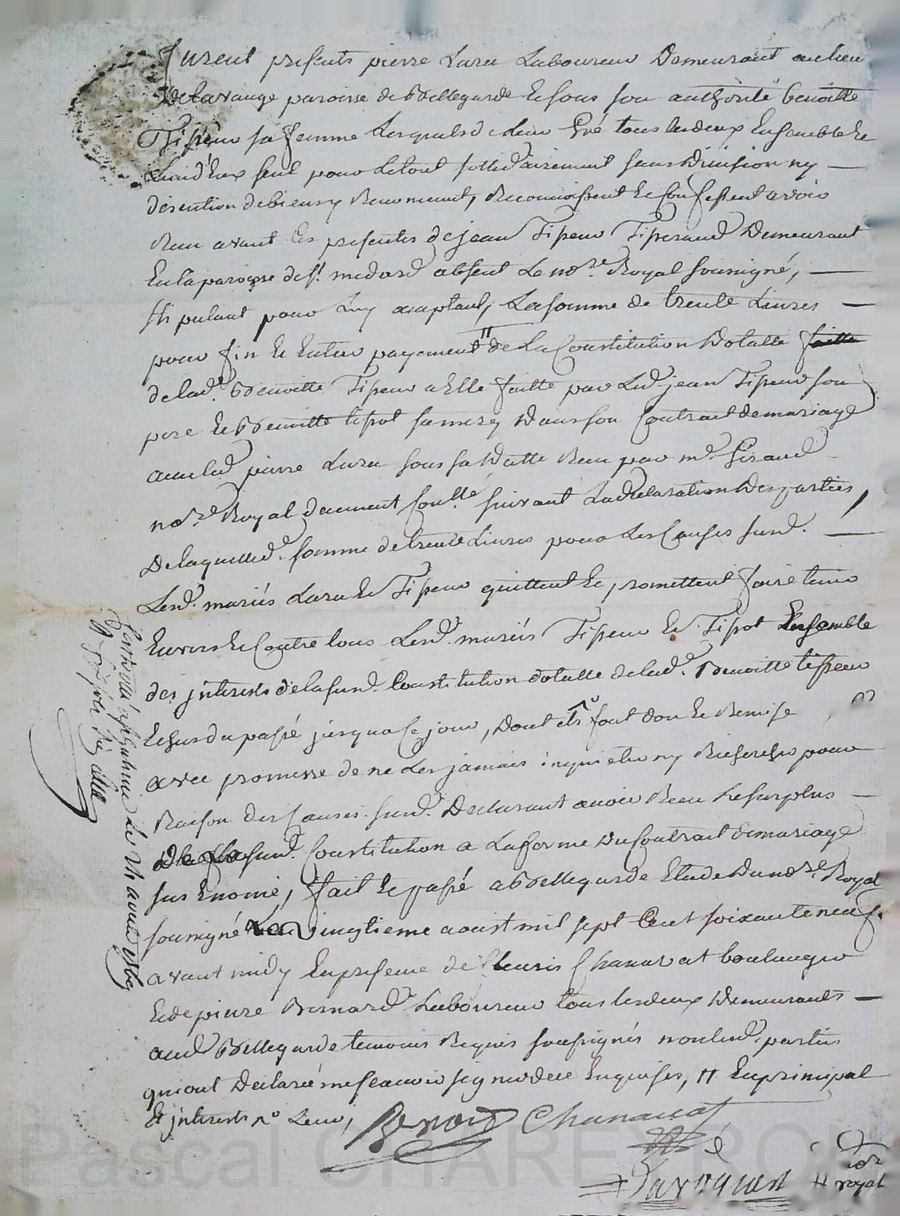 furent présents pierre Lara Laboureur Demeurant au lieu
Delavange paroisse de Bellegarde Et sous son authorité benoitte
Tipeur sa femme Lesquels de Leur Gré tous les deux Ensemble Et
L'un d'Eux seul pour Le tout sollidairement sans Division ny
de biens y Renoncant, Reconnoissent Et Confessent avoir
Reçu avant Ces présentes de jean Tipeur Demeurant
En la paroisse de st. medard absent Le nore. Royal soussigné,
stipulant pour Luy acceptant, La somme de trente Livres
pour fin Et Entier payement " de La Constitution Dotalle faitte
de lade. Benoitte Tipeur a Elle faitte par Led. jean Tipeur son
pere Et Benoitte tipot sa mere Dans son Contract de mariage
avec led. pierre Lara sous sa Datte Recu par me. Giraud
nore. Royal duement Conllé. suivant La Declaration Des parties,
De laquelle de. somme de trente Livres pour Les Causes susd.
Lesd. mariés Lara Et Tipeur quittent Et promettent faire tenir
Envers Et Contre tous Lesd. mariés Tipeur Et Tipot Ensemble
des jnterests de la susd. Constitution dotalle de lade. Benoitte tipeur
Echus du passé jusqu'a Ce jour, Dont ils font don Et Remise
avec promesse de ne Les jamais inquieter ny Rechercher pour
Raison des Causes susd. Declarant avoir Recu Le surplus
De la susd. Constitution a La forme Du Contract de mariage
sus Enoncé, fait Et passé a Bellegarde Etude Du nore. Royal
soussigné Le vingtieme aoust mil sept Cent soixante neuf.
avant midy En presence de fleuris Chanavat boulanger
Et de pierre Bernard Laboureur tous les deux Demeurants
aud. Bellegarde temoins Requis soussignés non lesd. parties
qui ont Declaré ne scavoir signer de ce Enquises, " En principal
Et jnterests
Benoid Chanavat
nore royal
Pascal CHARETRON